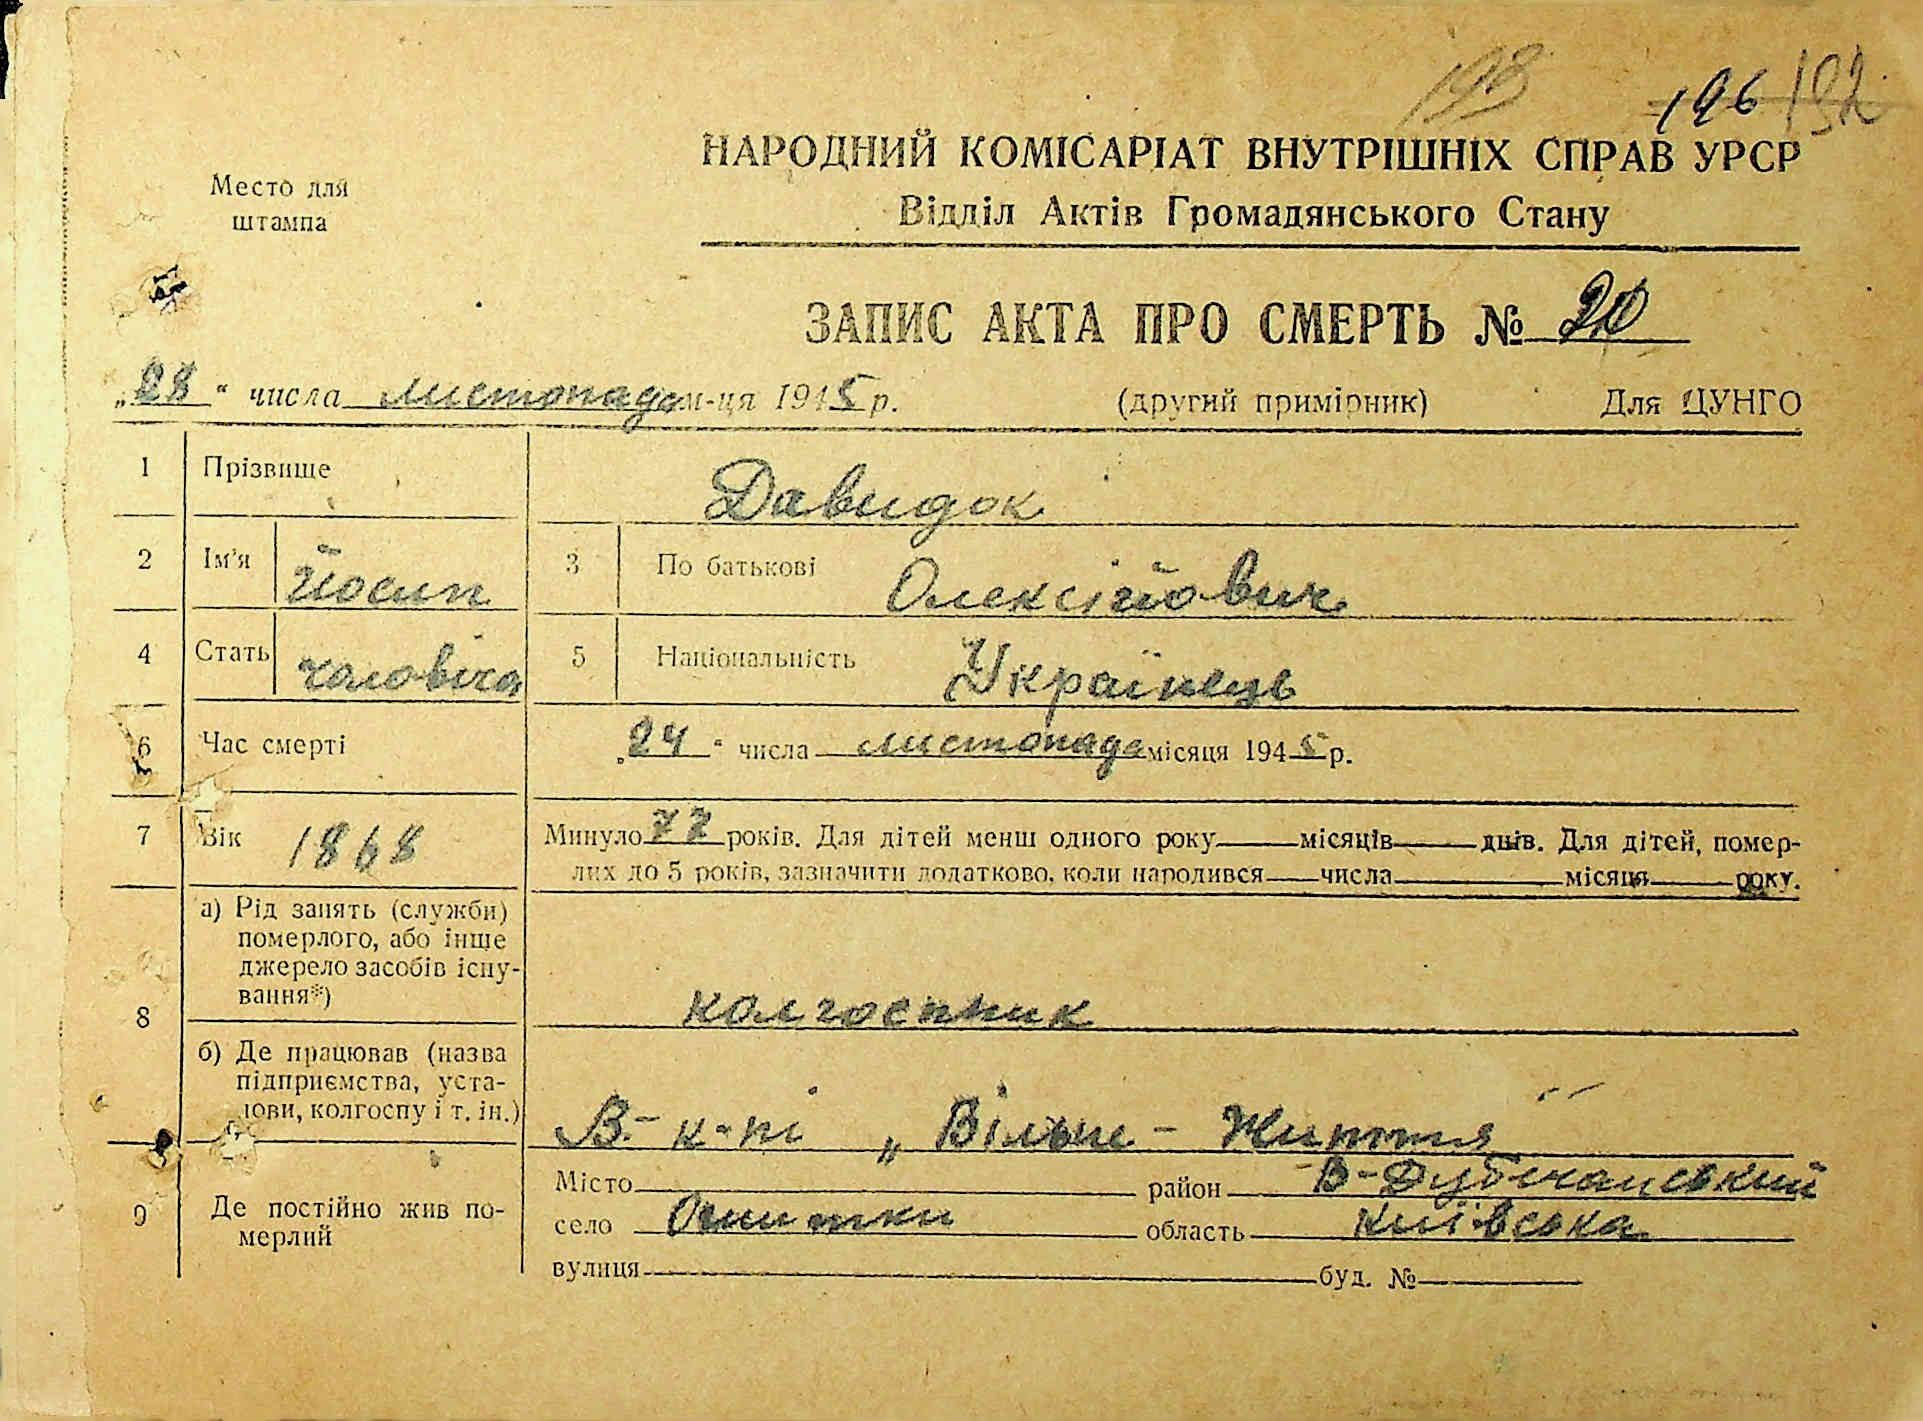 198 196 192
НАРОДНИЙ КОМІСАРІАТ ВНУТРІШНІХ СПРАВ УРСР
Место для
штампа
Відділ Актів Громадянського Стану
ЗАПИС АКТА ПРО СМЕРТЬ №
„28“ числа листопада м-ця 1945 р. (другий примірник) Для ЦУНГО
1 Прізвище Давидок
2 Ім'я Йосип 3 По батькові Олексійович
4 Стать чоловіча 5 Національність Українець
6 Час смерті „24“ числа листопада місяця 1945 р.
7 Вік 1868 Минуло 77 років. Для дітей менш одного року місяців днів. Для дітей, помер-
лих до 5 років, зазначити додатково, коли народився числа місяця року.
8 а) Рід занять (служби)
померлого, або інше
джерело засобів існу-
вання*) колгоспник
б) Де працював (назва
підприємства, уста-
нови, колгоспу і т. ін.) В- к-пі „Вільне - Життя"
9 Де постійно жив по-
мерлий
Місто район В-Дубечанський
село область Київська
вулиця буд. №